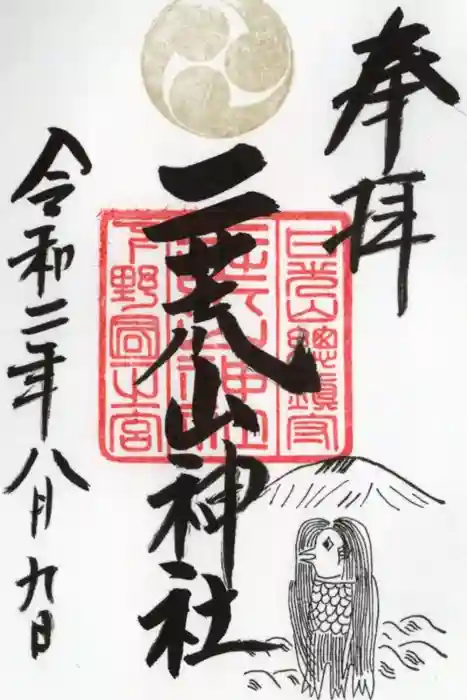 奉拝
二荒山神社
日光山總鎮守
下野國一之宮
令和二年八月九日